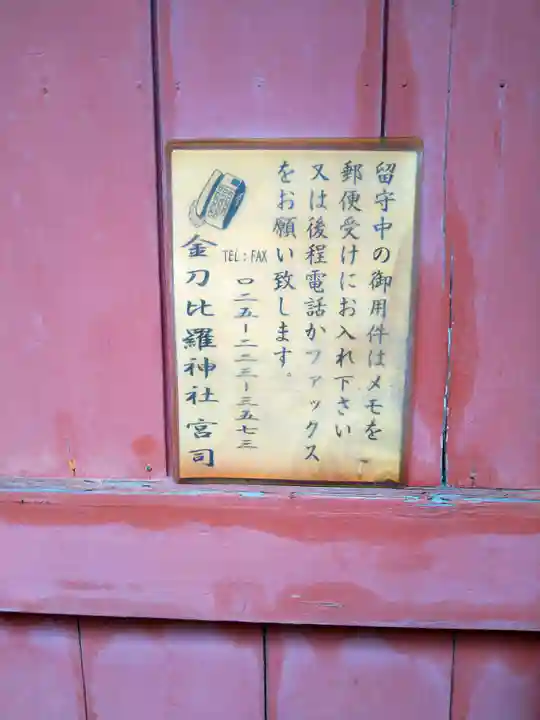 留守中の御用件はメモを
郵便受けにお入れ下さい
又は後程電話かファックス
をお願い致します。
TEL:FAX
〇二五-二二三-三五七三
金刀比羅神社 宮司